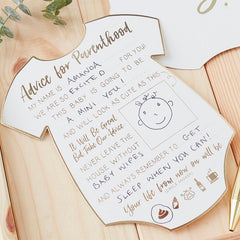 Advice for Parenthood
MY NAME IS AMANDA
WE ARE SO EXCITED FOR YOU!
THIS BABY IS GOING TO BE
MINI YOU
AND WILL LOOK AS CUTE AS THIS
It Will Be Great
But Take Our Advice
NEVER LEAVE THE
HOUSE WITHOUT
BABY WIPES
AND ALWAYS REMEMBER TO GET
SLEEP WHEN YOU CAN
Your life from now on will be